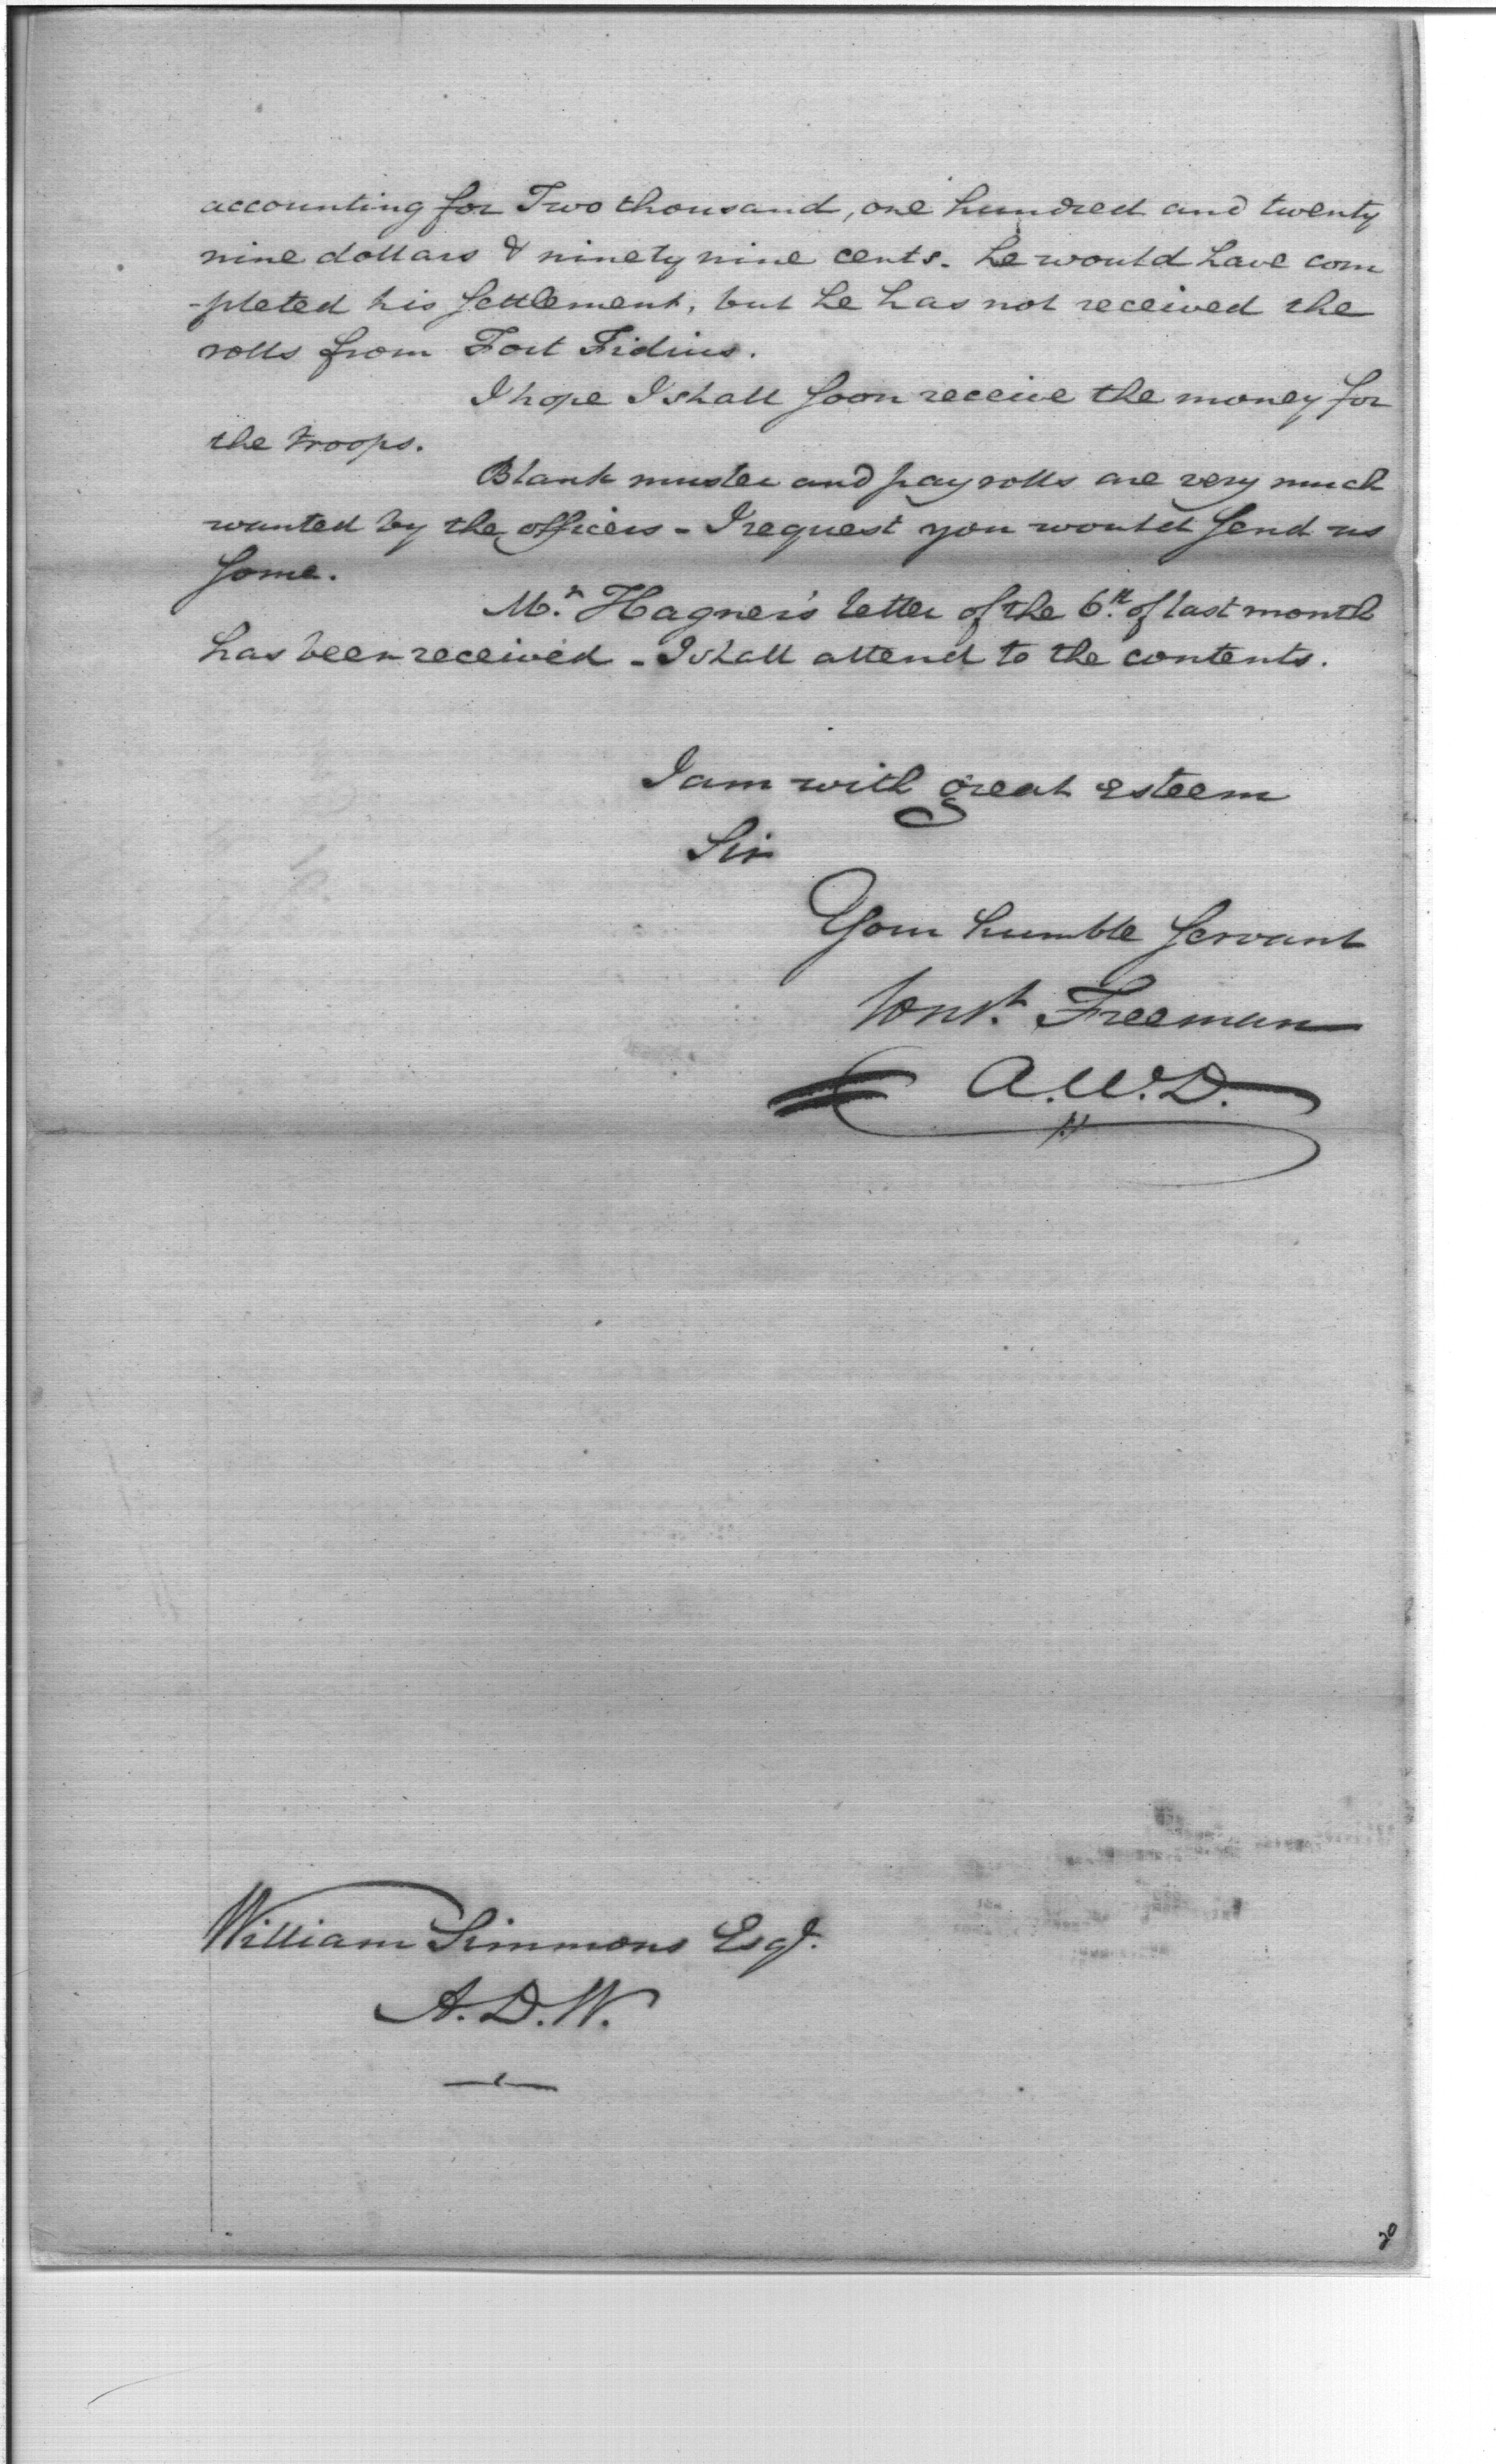 accounting for Two thousand, one hundred and twenty
nine dollars & ninety nine cents. he would have com
-pleted his settlement, but he has not received the
rolls from Fort Fidius.
I hope I shall soon receive the money for
the troops.
Blank muster and pay rolls are very much
wanted by the officers - I request you would send us
some.
Mr. Hagner's letter of the 6th. of last month
has been received - I shall attend to the contents.
I am with great esteem
Sir
Your humble servant
Const. Freeman
A.W.D.
William Simmons Esqr.
A.D.W.